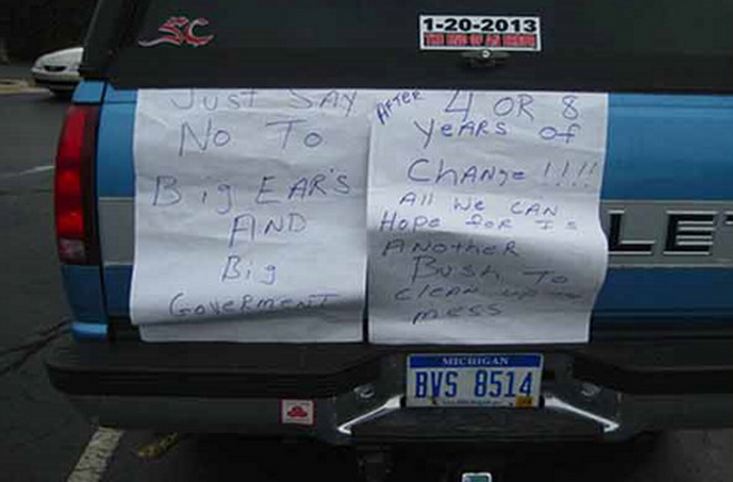 SC
1-20-2013
THE END OF AN ERROR
JUST SAY
NO TO
Big EAR'S
AND
Big
GOVERMENT
AFTER 4 OR 8
YEARS OF
CHANGE !!!!
All WE CAN
HOPE FOR IS
ANOTHER
BUSH TO
CLEAN UP
MESS
LET
MICHIGAN
BVS 8514